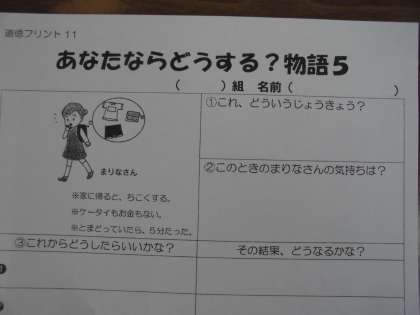 道徳プリント 11
あなたならどうする?物語5
( )組 名前( )
①これ、どういうじょうきょう?
まりなさん
②このときのまりなさんの気持ちは?
※家に帰ると、ちこくする。
※ケータイもお金もない。
※とまどっていたら、5分たった。
③これからどうしたらいいかな?
その結果、どうなるかな?